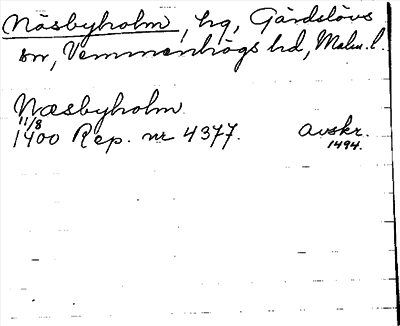 Näsbyholm, hg, Gärdslövs
sn, Vemmenhögs hd, Malm. l.
Næsbyholm
11/8
1400 Rep. nr 4377. avskr.
1494.